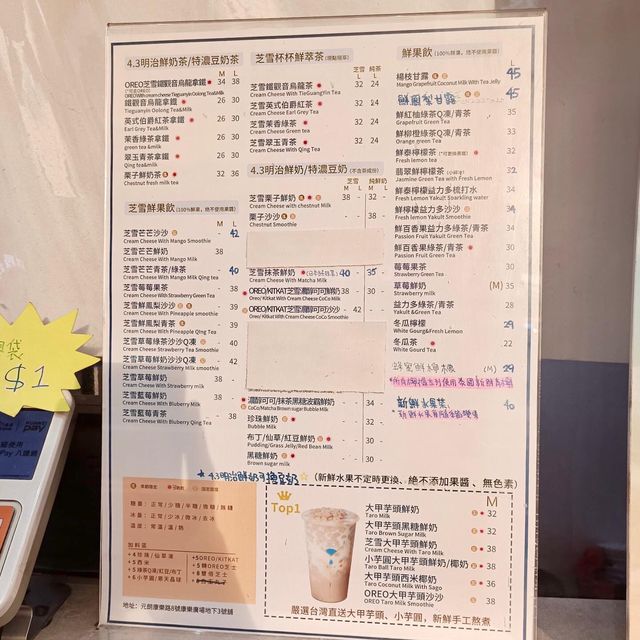 4.3明治鮮奶茶/特濃豆奶茶 M L
OREO芝雪鐵觀音烏龍拿鐵 34 38
OREO/With cream cheese Tieguanyin Oolong Tea&Milk
鐵觀音烏龍拿鐵 26 30
Tieguanyin Oolong Tea&Milk
英式伯爵紅茶拿鐵 26 30
Earl Grey Tea&Milk
茉香綠茶拿鐵 26 30
green tea &milk
翠玉青茶拿鐵 26 30
Qing tea&milk
栗子鮮奶茶 32 36
Chestnut fresh milk tea
芝雪鮮果飲 (100%鮮果，絕不使用果醬) L
芝雪芒芒沙沙 42
Cream Cheese With Mango Smoothie
芝雪芒芒鮮奶 38
Cream Cheese With Mango Milk
芝雪芒芒青茶/綠茶 40
Cream Cheese With Mango Milk Qing tea
芝雪莓莓果茶 38
Cream Cheese With Strawberry Green Tea
芝雪鮮鳳梨沙沙 39
Cream Cheese With Pineapple smoothie
芝雪鮮鳳梨青茶 39
Cream Cheese With Pineapple Qing Tea
芝雪草莓綠茶沙沙Q凍 40
Cream Cheese With Strawberry Green Tea smoothie
芝雪草莓鮮奶沙沙Q凍 42
Cream Cheese With Strawberry Milk Tea smoothie
芝雪草莓鮮奶 38
Cream Cheese With Strawberry milk
芝雪藍莓鮮奶 38
Cream Cheese With Blueberry Milk
芝雪藍莓青茶 38
Cream Cheese With Bluberry Qing Tea
芝雪杯杯鮮萃茶 芝雪 純茶
L L
芝雪鐵觀音烏龍茶 32 24
Cream Cheese With TieGuangYin Tea
芝雪英式伯爵紅茶 32 24
Cream Cheese Earl Grey Tea
芝雪茉香綠茶 32 24
Cream Cheese Green Tea
芝雪翠玉青茶 32 24
Cream Cheese With Qing Tea
4.3明治鮮奶/特濃豆奶 (不含茶成份)
芝雪 純鮮奶
M L M L
芝雪栗子鮮奶 38 - 32 -
Cream Cheese with chestnut Milk
栗子沙沙 - 38 -
Chestnut Smoothie
芝雪抹茶鮮奶 40 - 35 -
Cream Cheese with Matcha Milk
OREO/KITKAT芝雪濃醇可可鮮奶 38 -
Oreo/ Kitkat With Cream Cheese CoCo Milk
OREO/KITKAT芝雪濃醇可可沙沙 - 42
Oreo/ Kitkat With Cream Cheese CoCo Smoothie
濃醇可可/抹茶黑糖波霸鮮奶
CoCo/Matcha Brown sugar Bubble Milk 34 -
珍珠鮮奶 30 -
Bubble Milk
布丁/仙草/紅豆鮮奶 30 -
Pudding/Grass Jelly/Red Bean Milk
黑糖鮮奶 30 -
Brown sugar milk
鮮果飲 (100%鮮果，絕不使用果醬) L
楊枝甘露 45
Mango Grapefruit Coconut Milk With Tea Jelly
45
鮮紅柚綠茶Q凍/青茶 35
Grapefruit Green Tea
鮮柳橙綠茶Q凍/青茶 33
Orange green Tea
鮮泰檸檬茶 (*可更換青茶) 32
Fresh lemon tea
翡翠鮮檸檬茶 32
Jasmine Green Tea with Fresh Lemon
鮮檸檬益力多梳打水 34
Fresh Lemon Yakult Sparkling water
鮮檸檬益力多沙沙 34
Fresh Lemon Yakult Smoothie
鮮百香果益力多綠茶/青茶 34
Passion Fruit Yakult Green Tea
鮮百香果綠茶/青茶 30
Passion Fruit Green Tea
莓莓果茶 30
Strawberry Green Tea
草莓鮮奶 (M) 35
Strawberry milk
益力多綠茶/青茶 28
Yakult Green Tea
冬瓜檸檬 29
White Gourg&Fresh Lemon
冬瓜茶 22
White Gourd Tea
(M) 29
40
(新鮮水果不定時更換、絕不添加果醬、無色素)
糖量：正常/少糖/半糖/微糖/無糖
冰量：正常/少冰/微冰/去冰
溫度：常溫/溫/熱
加料區
+4珍珠/仙草凍
+5西米
+5綠茶Q凍/紅豆/布丁
+6小芋圓/寒天晶球
+5OREO/KITKAT
+5 糖OREO芝士
+8雙倍芝士
地址：元朗康樂路8號康樂廣場地下3號舖
Top1
M
大甲芋頭鮮奶 32
Taro Milk
大甲芋頭黑糖鮮奶 32
Taro Brown Sugar Milk
芝雪大甲芋頭鮮奶 38
Cream Cheese With Taro Milk
小芋圓大甲芋頭鮮奶/椰奶 38
Taro Ball Taro Milk
大甲芋頭西米椰奶 36
Taro Coconut Milk With Sago
OREO大甲芋頭沙沙 38
OREO Taro Milk Smoothie
嚴選台灣直送大甲芋頭、小芋圓，新鮮手工熬煮
袋
$1